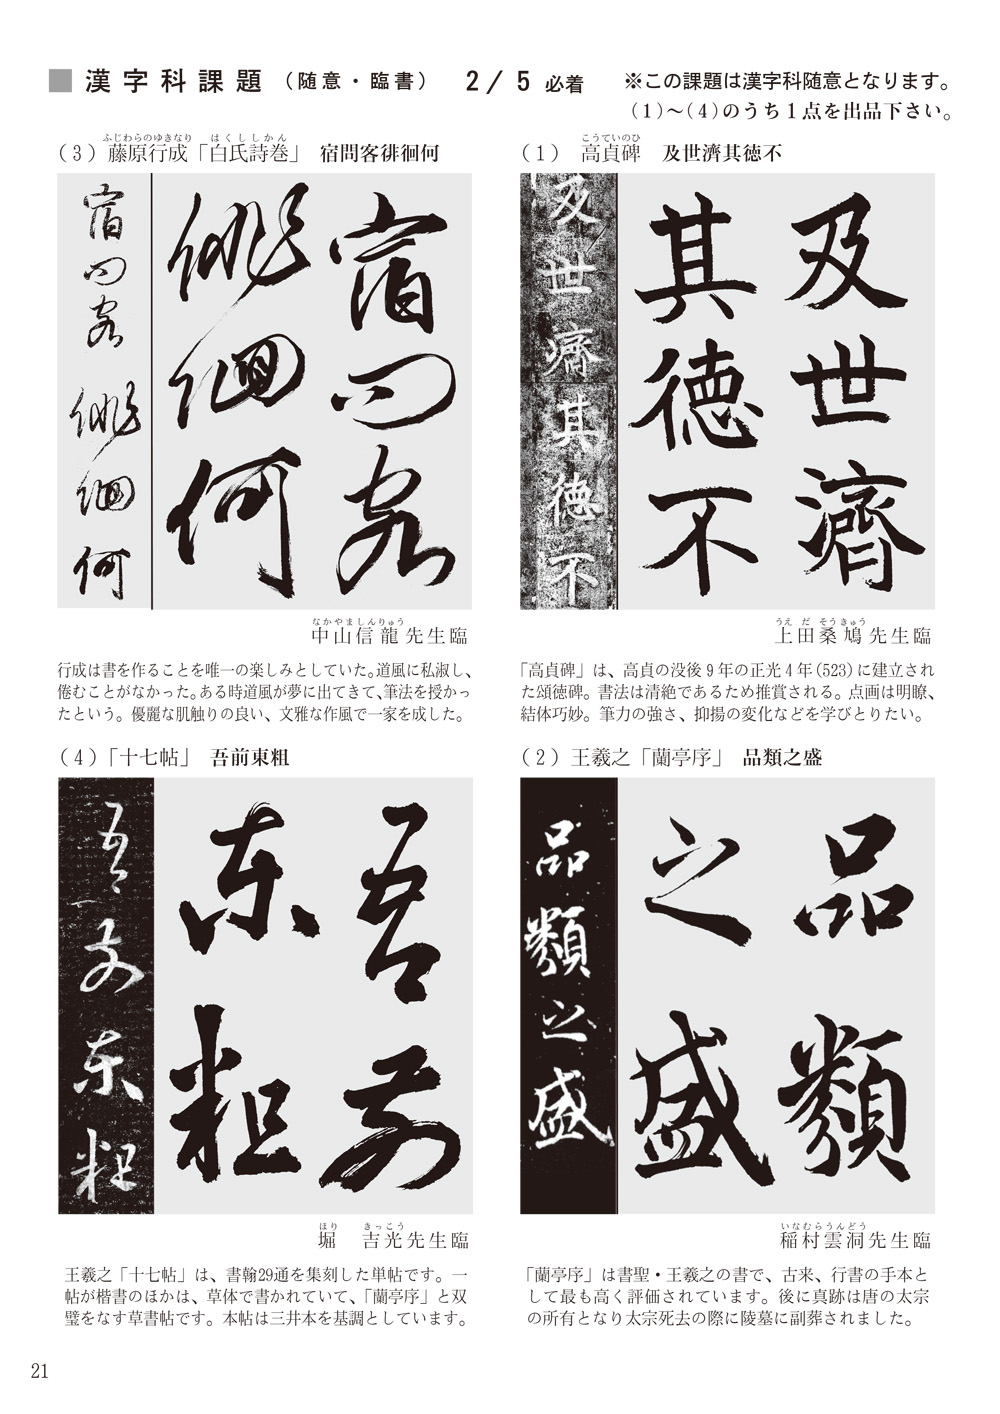 ■ 漢字科課題（随意・臨書） 2/5 必着 ※この課題は漢字科随意となります。
（1）～（4）のうち１点を出品下さい。
（1） 高貞碑 及世濟其徳不
こうていのひ
及世濟其徳不
及世濟
其徳不
上田桑鳩先生臨
うえだそうきゅう
「高貞碑」は、高貞の没後９年の正光４年（523）に建立され
た頌徳碑。書法は清絶であるため推賞される。点画は明瞭、
結体巧妙。筆力の強さ、抑揚の変化などを学びとりたい。
（2）王羲之「蘭亭序」 品類之盛
品類之盛
品類
之盛
稲村雲洞先生臨
いなむらうんどう
「蘭亭序」は書聖・王羲之の書で、古来、行書の手本と
して最も高く評価されています。後に真跡は唐の太宗
の所有となり太宗死去の際に陵墓に副葬されました。
（3）藤原行成「白氏詩巻」 宿問客徘徊何
ふじわらのゆきなり はくししかん
宿問客徘徊何
宿問客
徘徊何
中山信龍先生臨
なかやましんりゅう
行成は書を作ることを唯一の楽しみとしていた。道風に私淑し、
倦むことがなかった。ある時道風が夢に出てきて、筆法を授かっ
たという。優麗な肌触りの良い、文雅な作風で一家を成した。
（4）「十七帖」 吾前東粗
吾前東粗
吾前
東粗
堀 吉光先生臨
ほり きっこう
王羲之「十七帖」は、書翰29通を集刻した単帖です。一
帖が楷書のほかは、草体で書かれていて、「蘭亭序」と双
璧をなす草書帖です。本帖は三井本を基調としています。
21